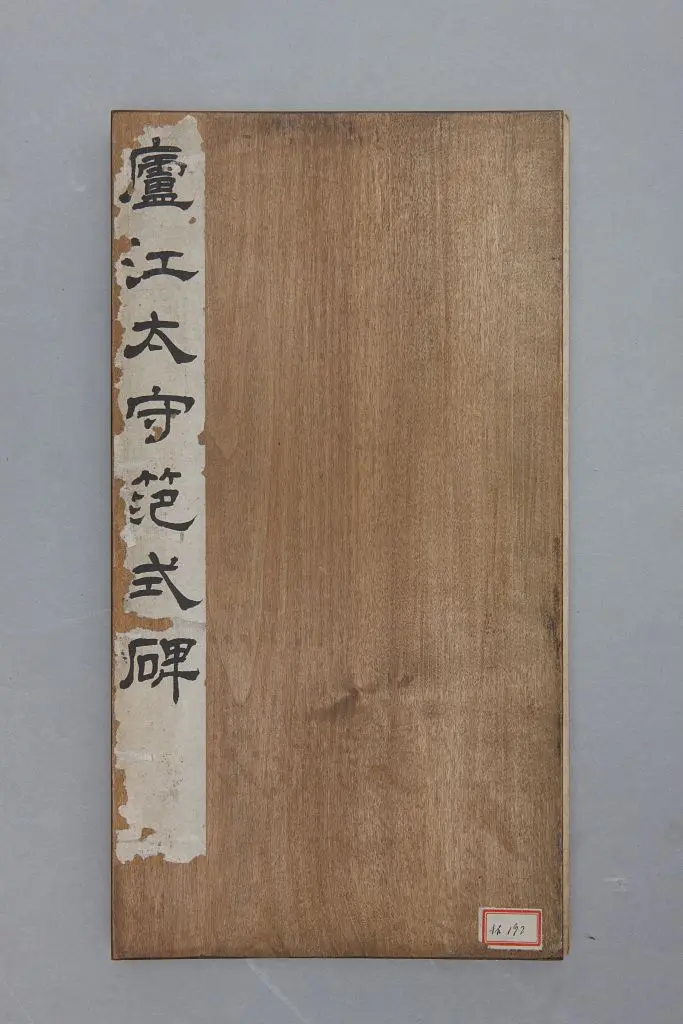 廬江太守范式碑
192